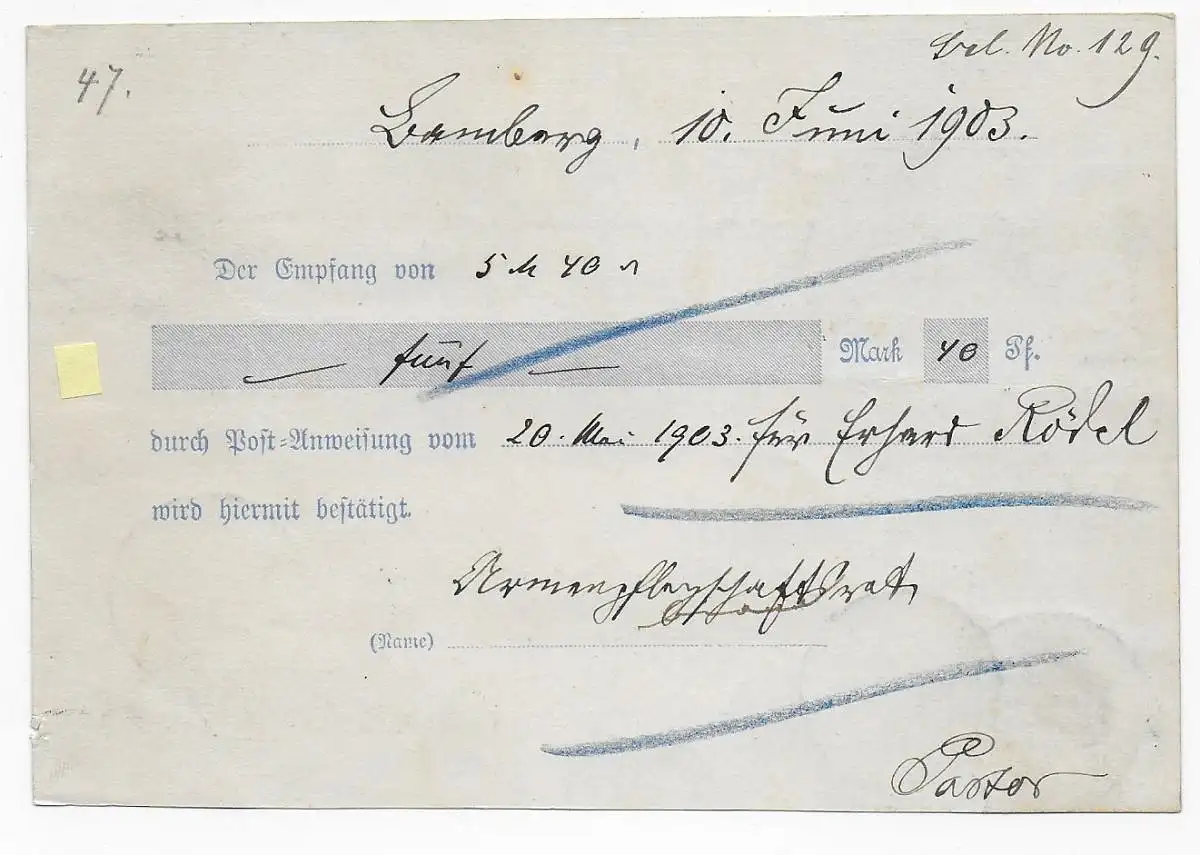 47.
bel. No. 129.
Bamberg, 10. Juni 1903.
Der Empfang von 5 M 40 ₰
fünf Mark 40 Pf.
durch Post-Anweisung vom 20. Mai 1903. für Erhard Rödel
wird hiermit bestätigt.
Armenpflegschaftsrat
(Name)
Pastor